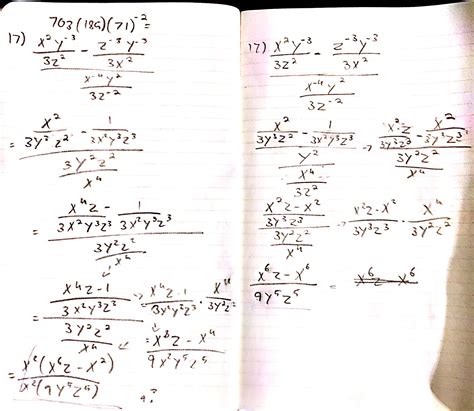 703(189)(71)⁻²=
17) (x²y⁻³/3z² - z⁻³y⁻³/3x²) / (x⁻⁴y²/3z⁻²)
= (x²/3y²z² - 1/3x²y³z³) / (3y²z²/x⁴)
= (x⁴z/3x²y³z³ - 1/3x²y³z³) / (3y²z²/x⁴)
= ((x⁴z-1)/3x²y³z³) / (3y²z²/x⁴) → (x⁴z-1)/3x²y³z³ · x⁴/3y²z²
= (x⁸z - x⁴)/9x²y⁵z⁵
= x²(x⁶z - x²)/x²(9y⁵z⁵)
17) (x²y⁻³/3z² - z⁻³y⁻³/3x²) / (x⁻⁴y²/3z⁻²)
(x²/3y³z² - 1/3x²y³z³) / (y²/(x⁴/3z²)) → (x²z/3y³z³ - x²/3y³z³) / (3y²z²/x⁴)
((x²z - x²)/3y³z³) / (3y²z²/x⁴) → (x²z - x²)/3y³z³ · x⁴/3y²z²
(x⁶z - x⁶)/9y⁵z⁵ =